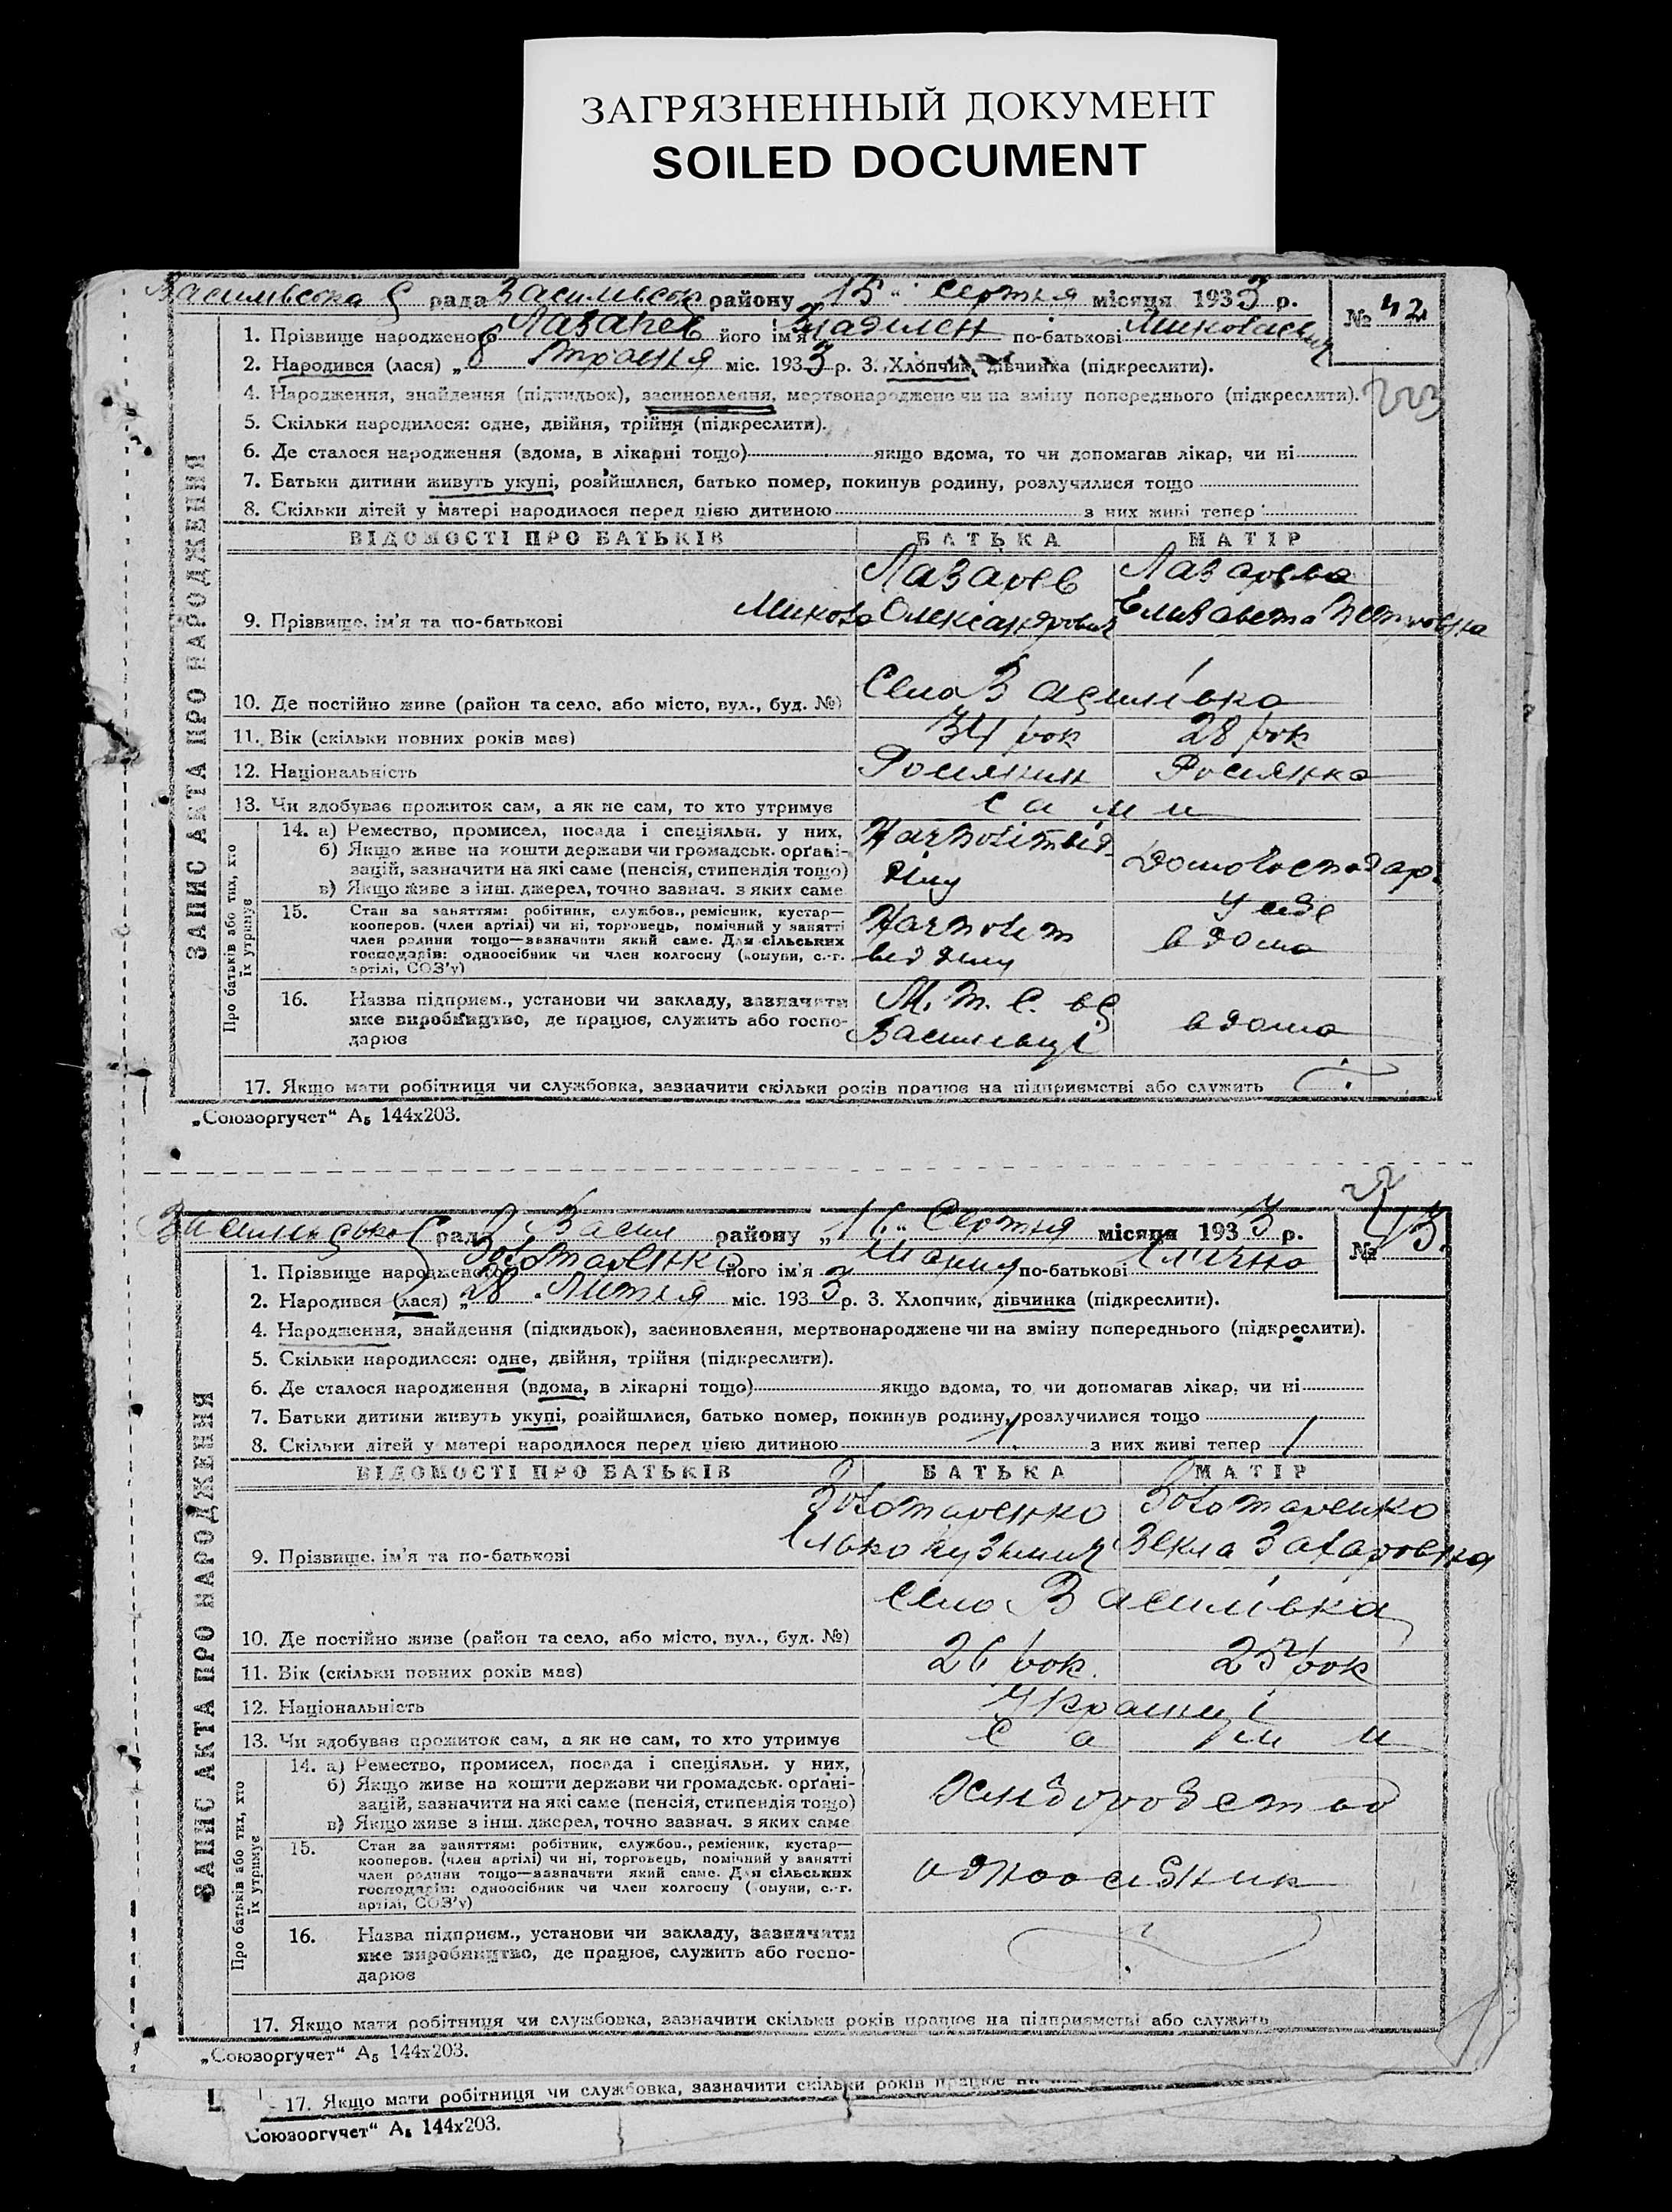 ЗАГРЯЗНЕННЫЙ ДОКУМЕНТ
SOILED DOCUMENT
рада району „15“ Серпня місяця 1933 р.
№ 42
1. Прізвище народженого Лазарев його ім'я по-батькові Миколаєвич
2. Народився (лася) „8 Травня міс. 1933 р. 3. Хлопчик, дівчинка (підкреслити).
4. Народження, знайдення (підкидьок), засиновлення, мертвонароджене чи на зміну попереднього (підкреслити).
5. Скільки народилося: одне, двійня, трійня (підкреслити).
6. Де сталося народження (вдома, в лікарні тощо) якщо вдома, то чи допомагав лікар, чи ні
7. Батьки дитини живуть укупі, розійшлися, батько помер, покинув родину, розлучилися тощо
8. Скільки дітей у матері народилося перед цією дитиною з них живі тепер
ВІДОМОСТІ ПРО БАТЬКІВ БАТЬКА МАТІР
Лазарев Лазарева
9. Прізвище, ім'я та по-батькові Микола Олександрович Елизавета Петровна
10. Де постійно живе (район та село, або місто, вул., буд. №) Село Василівка
11. Вік (скільки повних років має) 34 рок 28 рок
12. Національність Росиянин Росиянка
13. Чи здобуває прожиток сам, а як не сам, то хто утримує сами
14. а) Ремество, промисел, посада і спеціяльн. у них,
б) Якщо живе на кошти держави чи громадськ. орґані-
зацій, зазначити на які саме (пенсія, стипендія тощо)
в) Якщо живе з інш. джерел, точно зазнач. з яких саме
Начполітвід-
ділу
Домогосподар.
15. Стан за заняттям: робітник, службов., ремісник, кустар—
кооперов. (член артілі) чи ні, торговець, помічний у занятті
член родини тощо—зазначити який саме. Для сільських
господарів: одноосібник чи член колгоспу (комуни, с.-г.
артілі, СОЗ'у)
Начполит
вид дилу
У себе
вдома
16. Назва підприєм., установи чи закладу, зазначити
яке виробництво, де працює, служить або госпо-
дарює
М. Т. С. в с
Василівці
вдома
17. Якщо мати робітниця чи службовка, зазначити скільки років працює на підприємстві або служить
ЗАПИС АКТА ПРО НАРОДЖЕННЯ
Про батьків або тих, хто
їх утримує
„Союзоргучет“ А₅ 144х203.
рада Васил району „16“ Серпня місяця 1933 р.
№
1. Прізвище народженого Золотаренко його ім'я Мария по-батькові Ілічна
2. Народився (лася) „28 Липня міс. 1933 р. 3. Хлопчик, дівчинка (підкреслити).
4. Народження, знайдення (підкидьок), засиновлення, мертвонароджене чи на зміну попереднього (підкреслити).
5. Скільки народилося: одне, двійня, трійня (підкреслити).
6. Де сталося народження (вдома, в лікарні тощо) якщо вдома, то чи допомагав лікар, чи ні
7. Батьки дитини живуть укупі, розійшлися, батько помер, покинув родину, розлучилися тощо
8. Скільки дітей у матері народилося перед цією дитиною 1 з них живі тепер 1
ВІДОМОСТІ ПРО БАТЬКІВ БАТЬКА МАТІР
Золотаренко Золотаренко
9. Прізвище, ім'я та по-батькові Ілько Кузьмич Векла Захаровна
10. Де постійно живе (район та село, або місто, вул., буд. №) Село Василівка
11. Вік (скільки повних років має) 26 рок. 25 рок
12. Національність Українці
13. Чи здобуває прожиток сам, а як не сам, то хто утримує сами
14. а) Ремество, промисел, посада і спеціяльн. у них,
б) Якщо живе на кошти держави чи громадськ. орґані-
зацій, зазначити на які саме (пенсія, стипендія тощо)
в) Якщо живе з інш. джерел, точно зазнач. з яких саме
15. Стан за заняттям: робітник, службов., ремісник, кустар—
кооперов. (член артілі) чи ні, торговець, помічний у занятті
член родини тощо—зазначити який саме. Для сільських
господарів: одноосібник чи член колгоспу (комуни, с.-г.
артілі, СОЗ'у)
одноосібник
16. Назва підприєм., установи чи закладу, зазначити
яке виробництво, де працює, служить або госпо-
дарює
17. Якщо мати робітниця чи службовка, зазначити скільки років працює на підприємстві або служить
ЗАПИС АКТА ПРО НАРОДЖЕННЯ
Про батьків або тих, хто
їх утримує
„Союзоргучет“ А₅ 144х203.
17. Якщо мати робітниця чи службовка, зазначити скільки років працює
Союзоргучет“ А₅ 144х203.